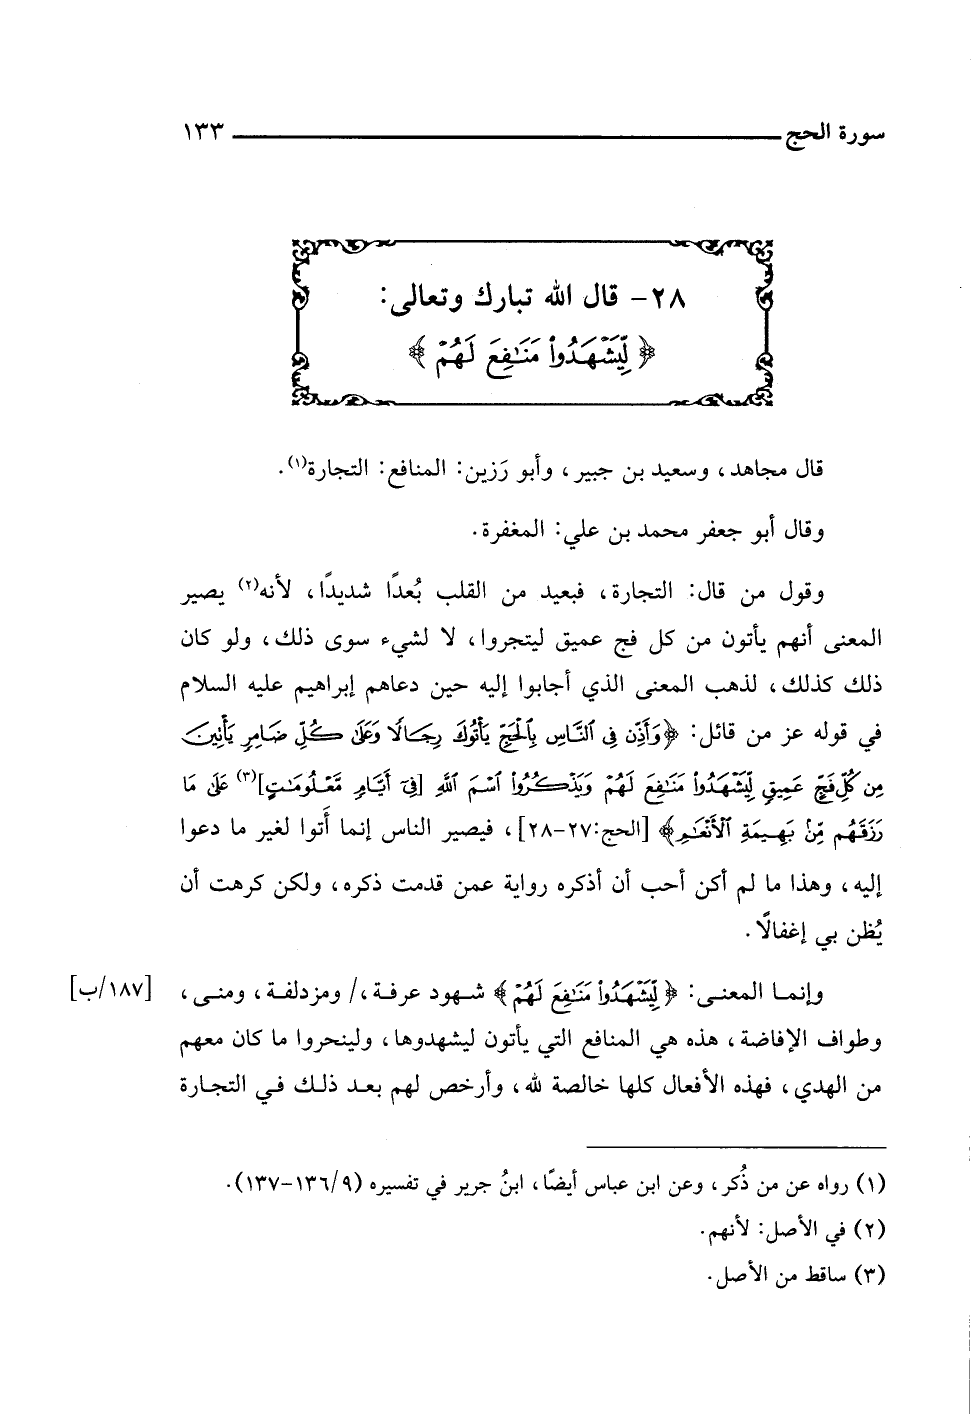 سورة الحج ١٣٣
٢٨- قال الله تبارك وتعالى:
﴿ لِّيَشْهَدُواْ مَنَٰفِعَ لَهُمْ ﴾
قال مجاهد، وسعيد بن جبير، وأبو رَزين: المنافع: التجارة(١).
وقال أبو جعفر محمد بن علي: المغفرة.
وقول من قال: التجارة، فبعيد من القلب بُعدًا شديدًا، لأنه(٢) يصير
المعنى أنهم يأتون من كل فج عميق ليتجروا، لا لشيء سوى ذلك، ولو كان
ذلك كذلك، لذهب المعنى الذي أجابوا إليه حين دعاهم إبراهيم عليه السلام
في قوله عز من قائل: ﴿وَأَذِّن فِى ٱلنَّاسِ بِٱلْحَجِّ يَأْتُوكَ رِجَالًا وَعَلَىٰ كُلِّ ضَامِرٍ يَأْتِينَ
مِن كُلِّ فَجٍّ عَمِيقٍ لِّيَشْهَدُواْ مَنَٰفِعَ لَهُمْ وَيَذْكُرُواْ ٱسْمَ ٱللَّهِ [فِىٓ أَيَّامٍ مَّعْلُومَٰتٍ](٣) عَلَىٰ مَا
رَزَقَهُم مِّنۢ بَهِيمَةِ ٱلْأَنْعَٰمِ﴾ [الحج:٢٧-٢٨]، فيصير الناس إنما أَتوا لغير ما دعوا
إليه، وهذا ما لم أكن أحب أن أذكره رواية عمن قدمت ذكره، ولكن كرهت أن
يُظن بي إغفالًا.
وإنما المعنى: ﴿ لِّيَشْهَدُواْ مَنَٰفِعَ لَهُمْ ﴾ شهود عرفة،/ ومزدلفة، ومنى، [١٨٧/ب]
وطواف الإفاضة، هذه هي المنافع التي يأتون ليشهدوها، ولينحروا ما كان معهم
من الهدي، فهذه الأفعال كلها خالصة لله، وأرخص لهم بعد ذلك في التجارة
(١) رواه عن من ذُكر، وعن ابن عباس أيضًا، ابنُ جرير في تفسيره (٩/١٣٦-١٣٧).
(٢) في الأصل: لأنهم.
(٣) ساقط من الأصل.